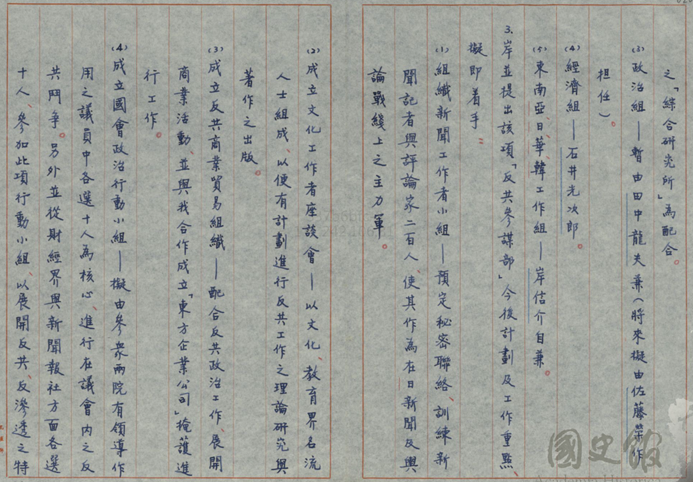 之「綜合研究所」為配合。
(3)政治組──暫由田中龍夫兼(將來擬由佐藤榮作
担任)
(4)經濟組──石井光次郎。
(5)東南亞、日、華、韓工作組──岸信介自兼。
3.岸並提出該項「反共參謀部」今後計劃及工作重點、
擬即着手:
(1)組織新聞工作者小組──預定秘密聯絡、訓練新
聞記者與評論家二百人、使其作為在日新聞反與
論戰綫上之主力軍。
(2)成立文化工作者座談會──以文化、教育界名流
人士組成、以便有計劃進行反共工作之理論研究與
著作之出版。
(3)成立反共商業貿易組織──配合反共政治工作、展開
商業活動、並與我合作成立「東方企業公司」掩護進
行工作。
(4)成立國會政治行動小組──擬由參眾兩院有領導作
用之議員中各選十人為核心、進行在議會內之反
共鬥爭。另外並從財經界與新聞報社方面各選
十人、參加此項行動小組、以展開反共、反滲透之特
國史館